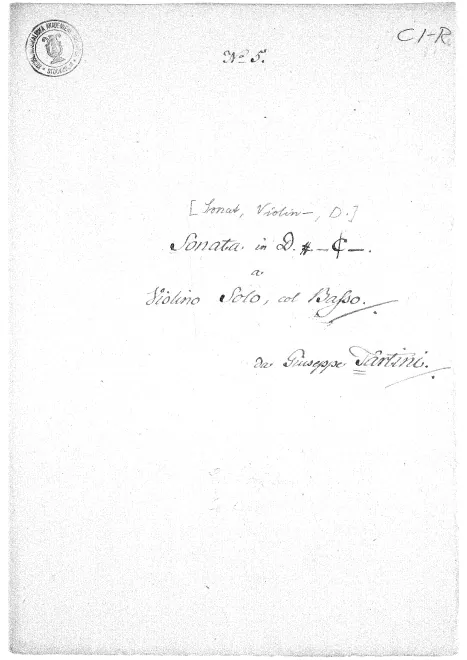 C1-R
No 5.
[Sonat, Violin-, D.]
Sonata in D. # - ₵ -.
a
Violino Solo, col Basso.
da Giuseppe Tartini.